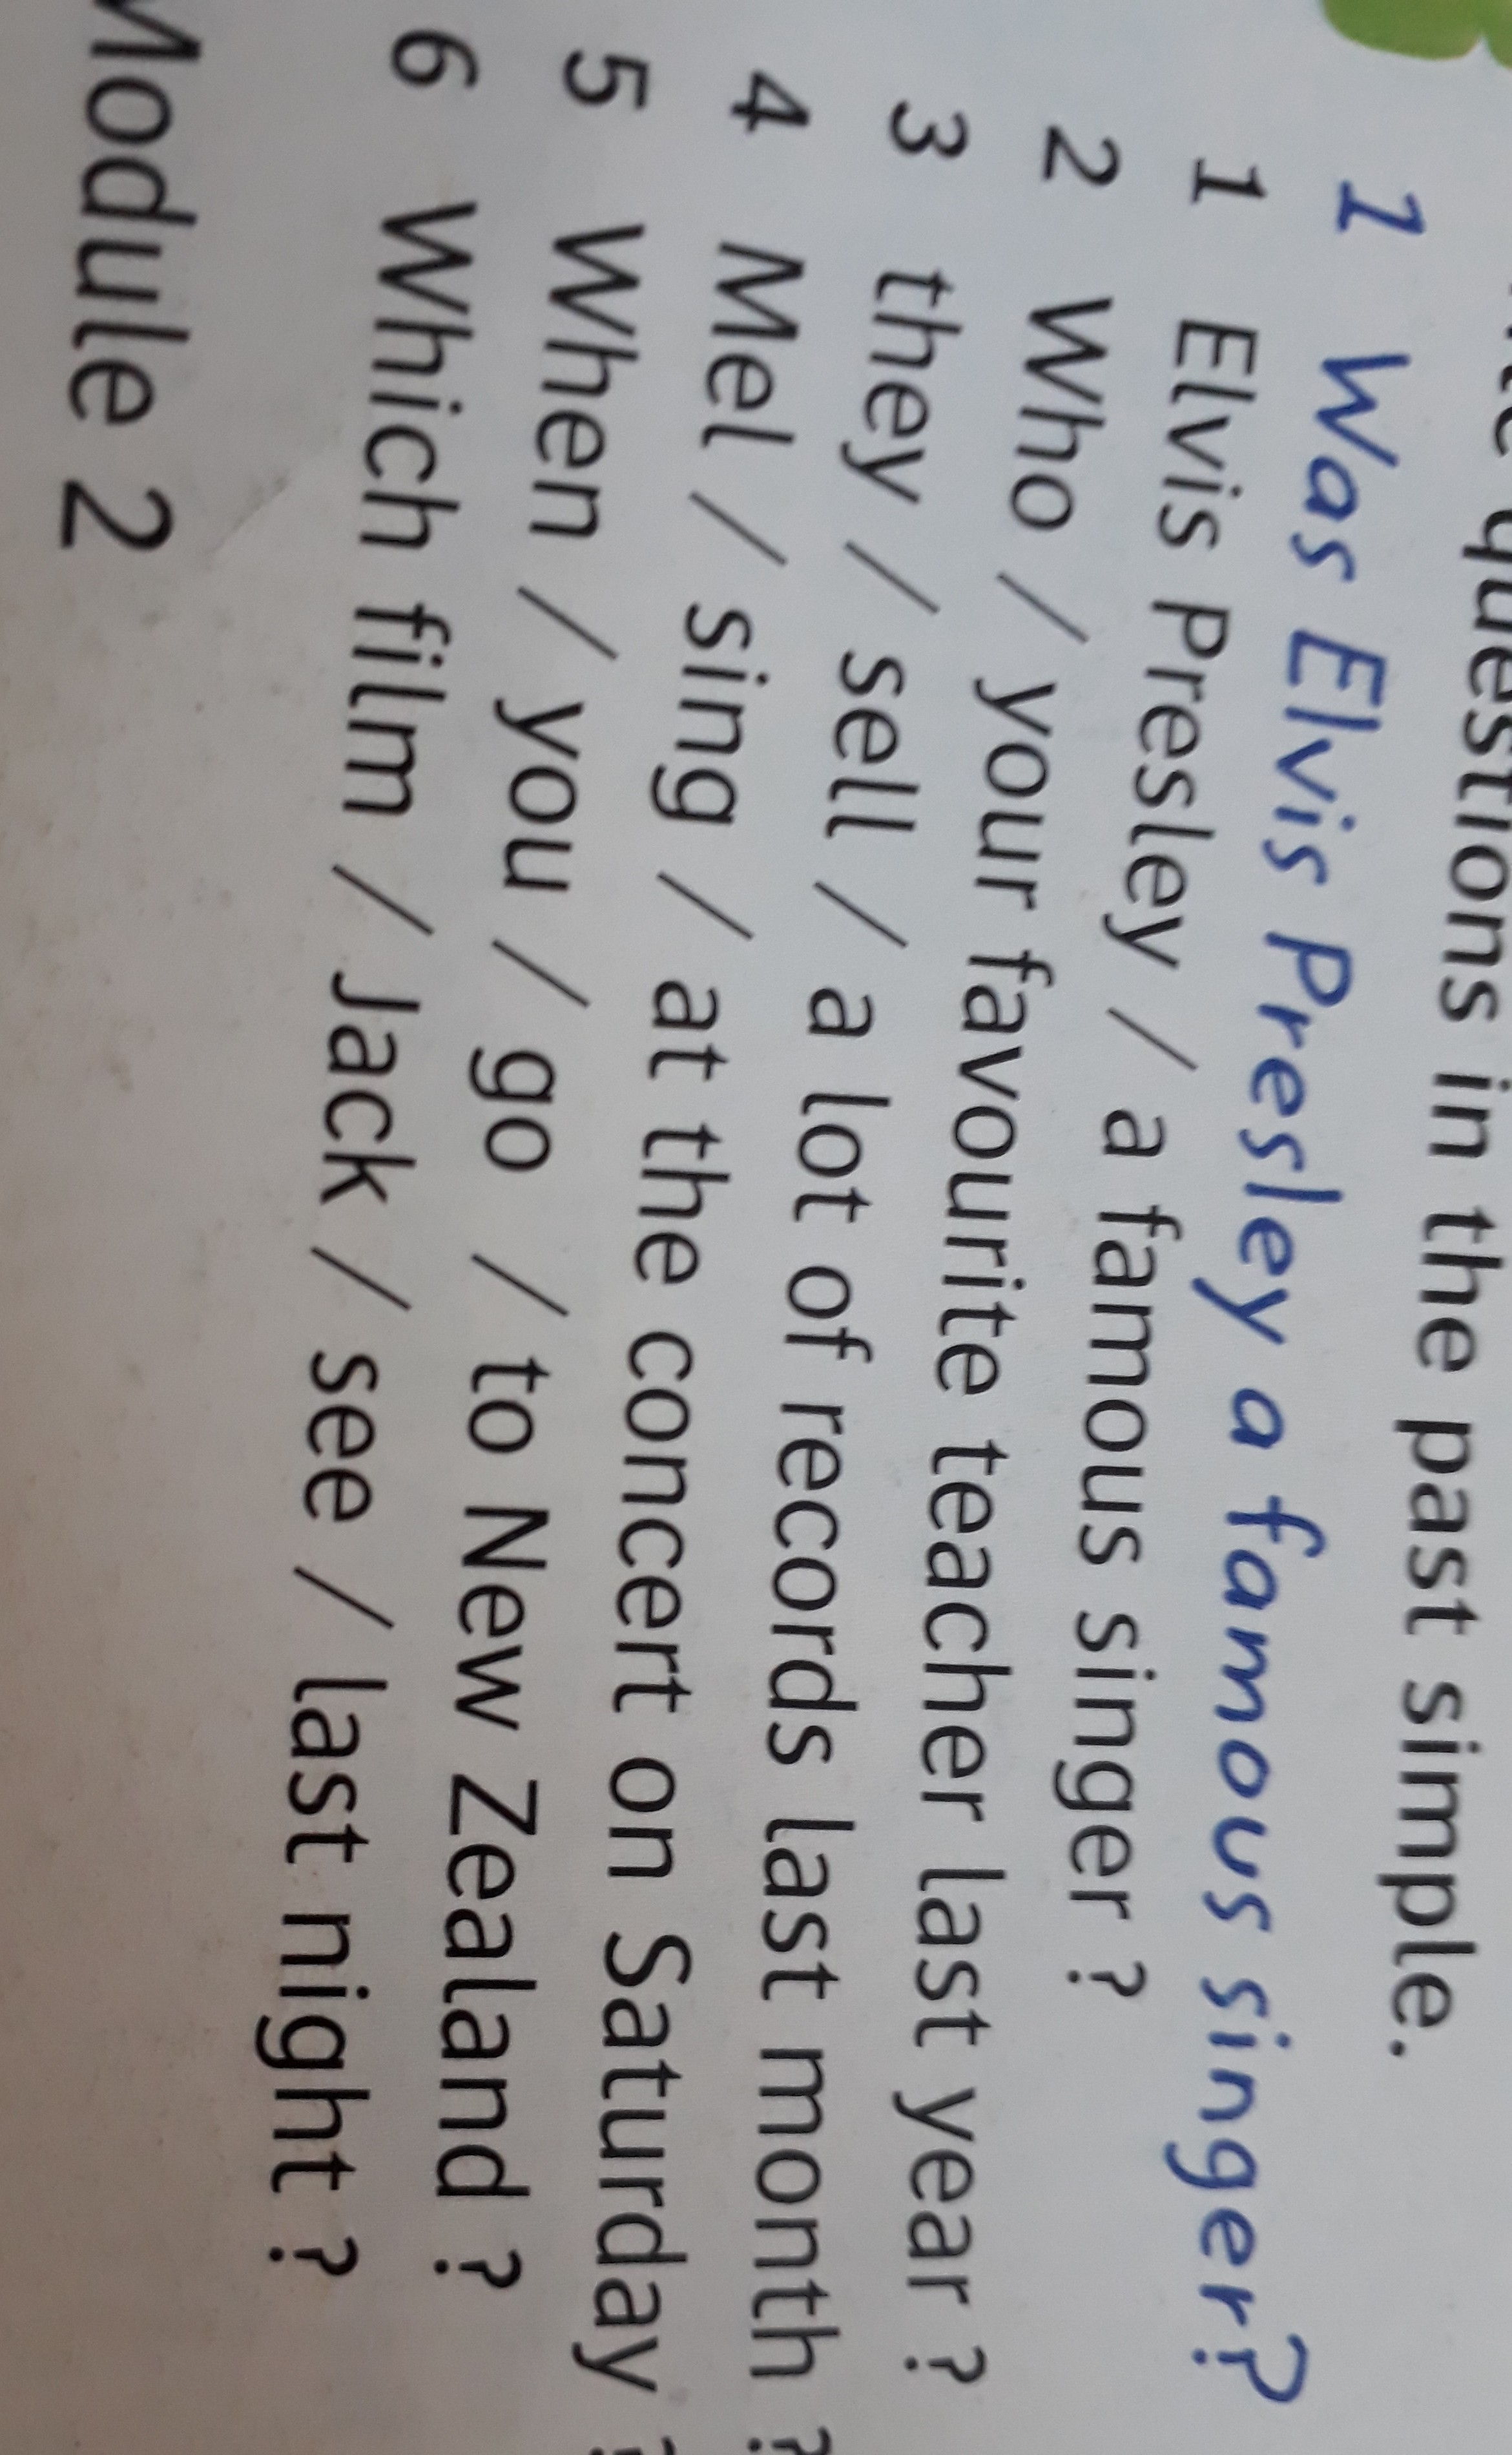 questions in the past simple.
1 Was Elvis Presley a famous singer?
1 Elvis Presley / a famous singer ?
2 Who / your favourite teacher last year ?
3 they / sell / a lot of records last month ?
4 Mel / sing / at the concert on Saturday ?
5 When / you / go / to New Zealand ?
6 Which film / Jack / see / last night ?
Module 2